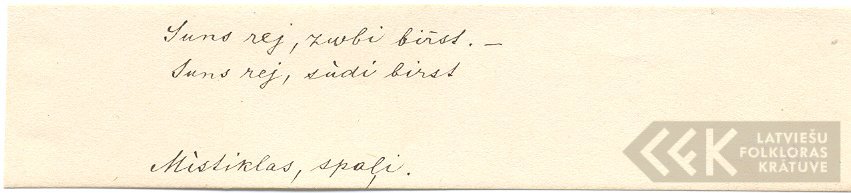 Suns rej, zobi birst. —
Suns rej, sūdi birst
Mīstiklas, spaļi.
LATVIEŠU
FOLKLORAS
KRĀTUVE